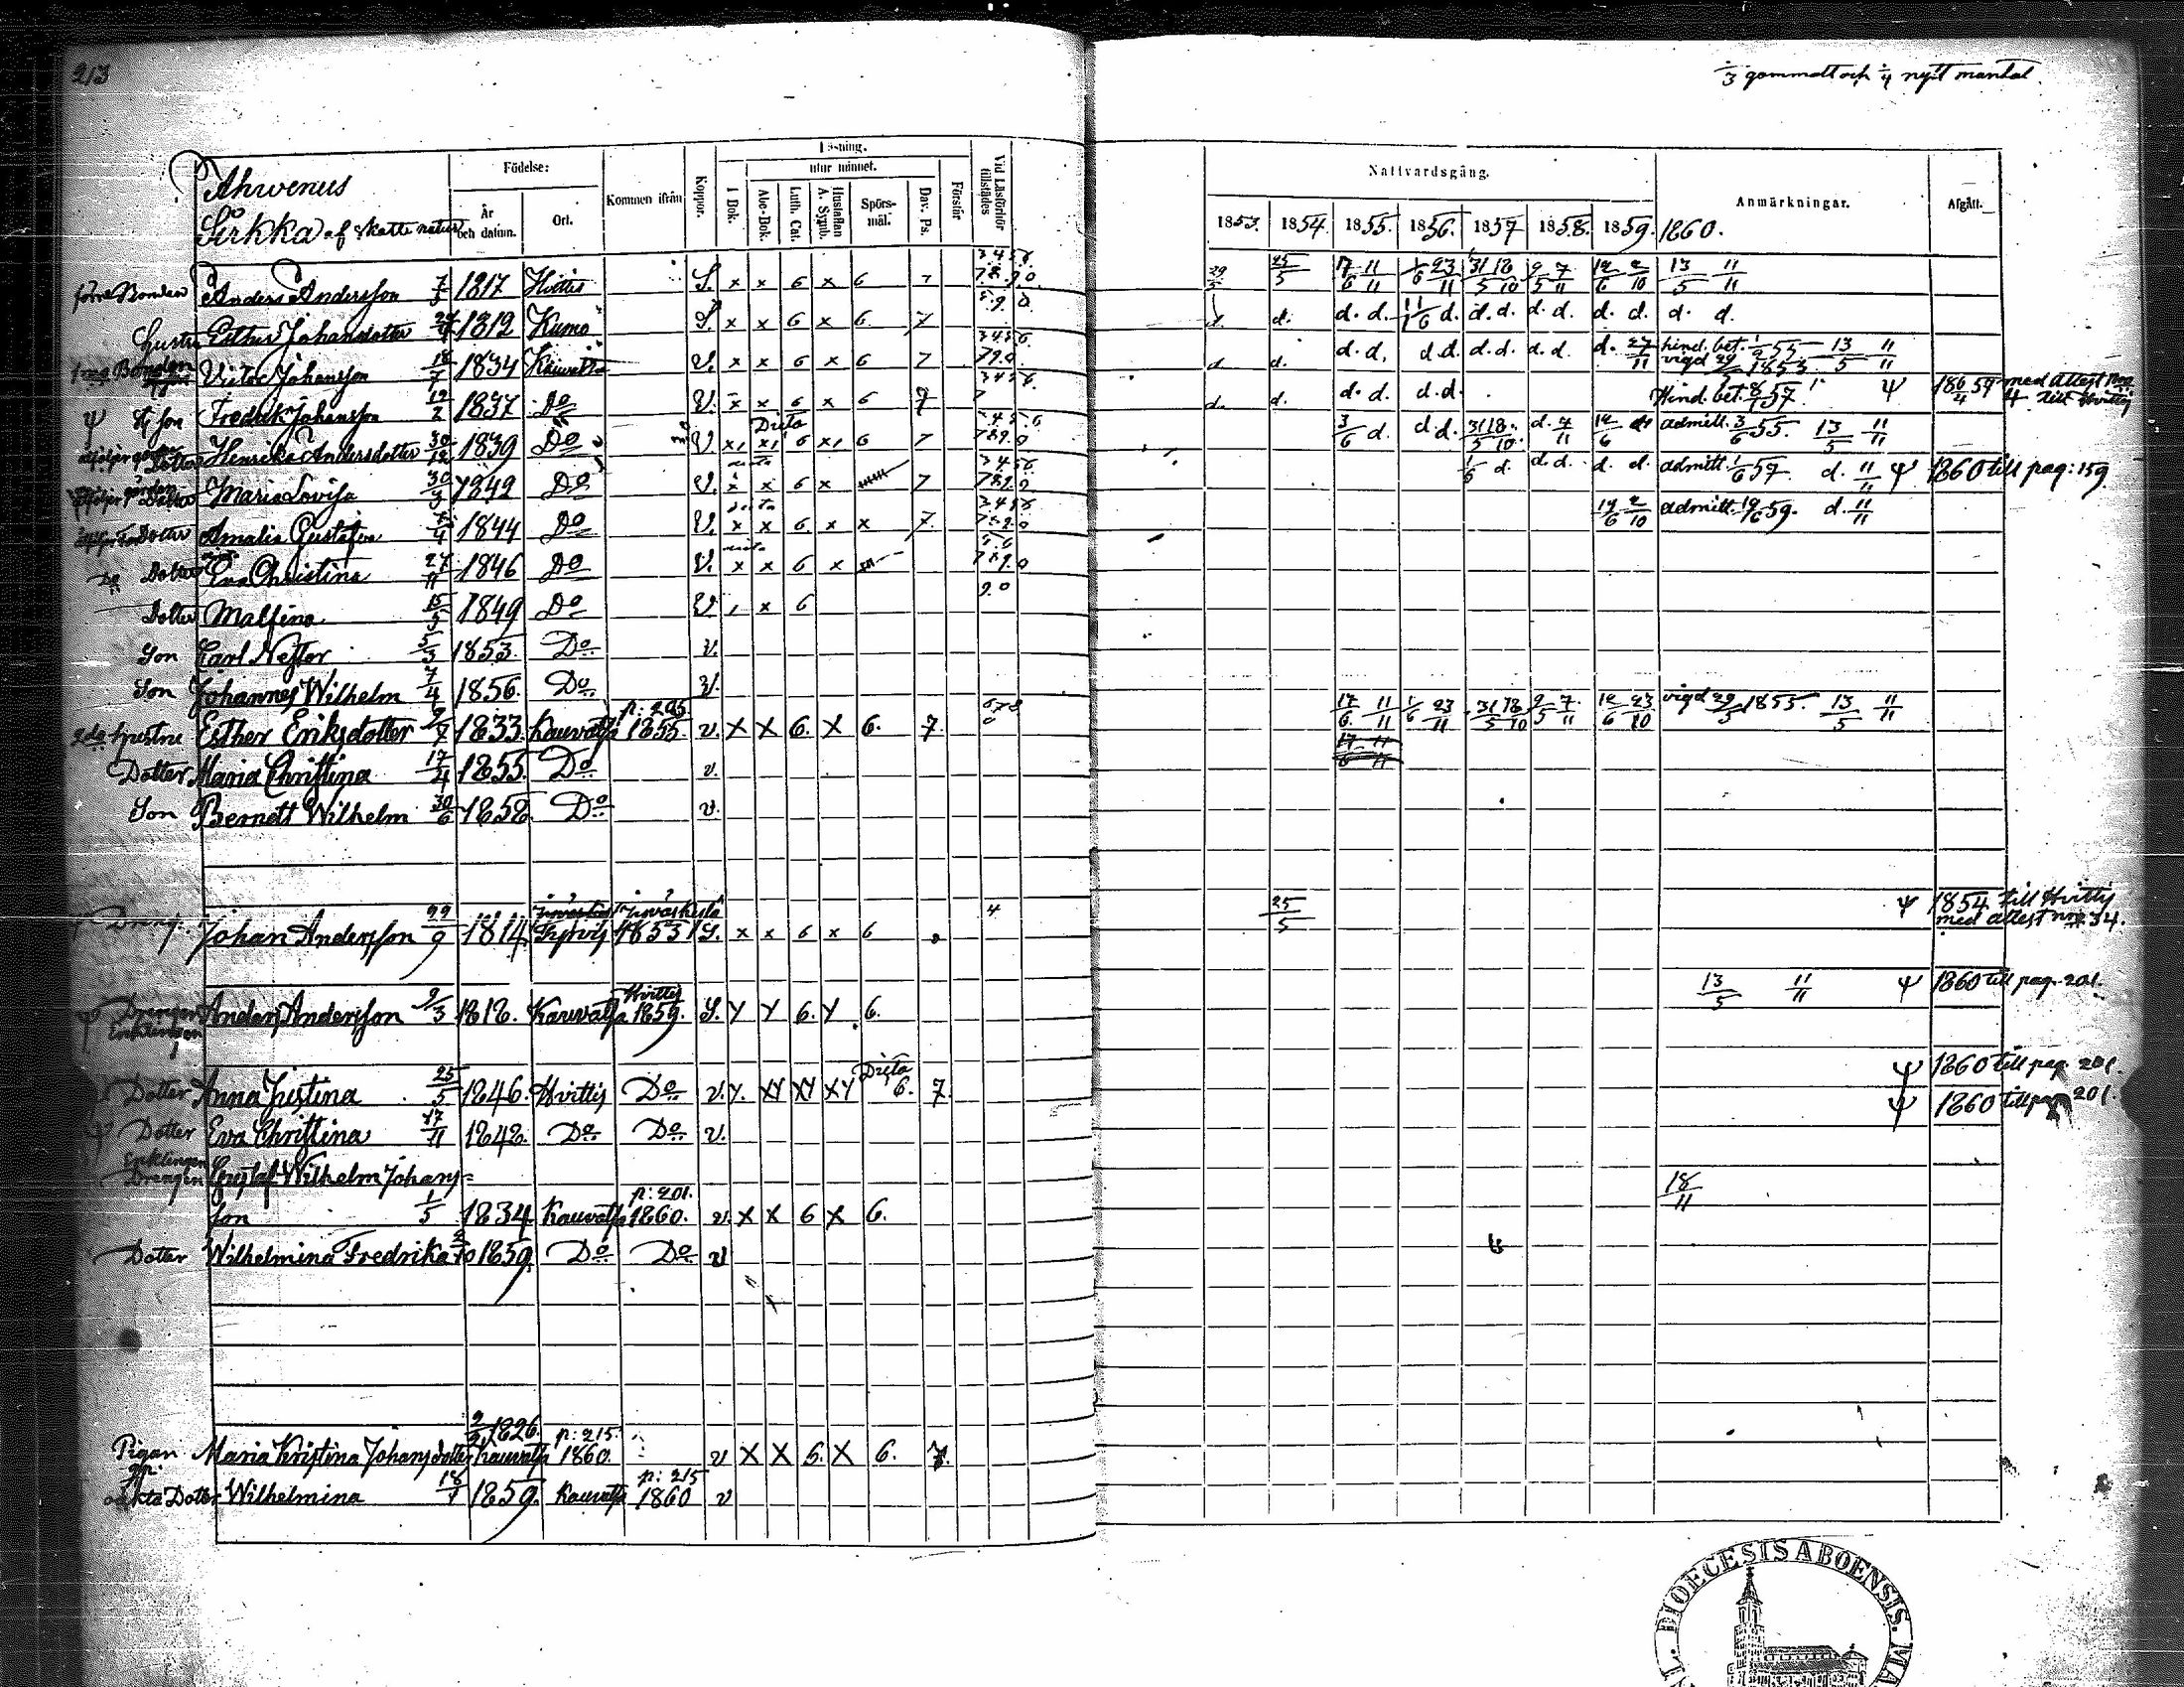 213
1/3 gammalt och 1/4 nytt mantal.
Ahwenus
Sirkka af Skatte natur
Födelse:
År och datum.
Ort.
Kommen ifrån
Koppor.
Läsning.
I Bok.
utur minnet.
Abc-Bok.
Luth. Cat.
Hustaflan A. Symb.
Spörsmål.
Dav. Ps.
Förstår
Vid Läsförhör tillstädes
Nattvardsgång.
1853. 1854. 1855. 1856. 1857 1858. 1859. 1860.
Anmärkningar.
Afgått.
förre Bonden Anders Andersson 7/3 1817 Hvittis S. x x 6 x 6 7 29/5 25/5 17/6 11/11 1/6 23/11 31/5 18/10 9/5 7/11 12/6 2/10 13/5 11/11
Hustru Esther Johansdotter 1812 Kumo S. x x 6 x 6. 7 d. d. d. d. d. d. d. d. d. d. d. d. d.
Bonden Victor Johansson 18/7 1834 Kauvatsa V. x x 6 x 6 7 d d. d. d. d. d. d. d. d. d. d. 27/11 hind. bet. 1/2 55 13/5 11/11
vigd 29/5 1853.
Ψ Son Fredrik Johansson 19/2 1837 Do V. x x 6 x 6 7 d. d. d. d. d. d. Hind. bet. 8/1 57. Ψ 18 6/4 59 med attest no 4 till Hvittis
Dotter Henrika Andersdotter 30/12 1839 Do V x x 6 x 6 7 3/6 d. d. d. 31/5 18/10 d. 7/11 12/6 d. admitt. 3/6 55. 13/5 11/11
Dotter Maria Lovisa 30/3 1842 Do V. x x 6 x 7 1/6 d. d. d. d. d. admitt. 1/6 57. d. 11/11 Ψ 1860 till pag: 159
Dotter Amalia Gustafva 1844 Do V. x x 6 x x 7. 12/6 2/10 admitt. 12/6 59. d. 11/11
Do Dotter Eva Christina 27/11 1846 Do V. x x 6 x
Dotter Malfina 15/5 1849 Do V x 6
Son Carl Nestor 5/3 1853. Do v.
Son Johannes Wilhelm 7/4 1856. Do v.
2de Hustru Esther Eriksdotter 9/7 1833. Kauvatsa p: 205. 1855. v. X X 6. X 6. 7. 17/6 11/11 1/6 23/11 31/5 18/10 9/5 7/11 12/6 23/10 vigd 29/5 1855. 13/5 11/11
Dotter Maria Christina 17/4 1855. Do v.
Son Bernett Wilhelm 30/6 1858. Do v.
Dreng. Johan Andersson 29/9 1814. Tyrvis 1853 S. x x 6 x 6 4 25/5 Ψ 1854 till Hvittis
med attest no 34.
Ψ Drengen Enklingen Anders Andersson 9/3 1818. Kauvatsa Hvittis 1859. S. Y Y 6. Y 6. 13/5 11/11 Ψ 1860 till pag. 201.
Dotter Anna Justina 25/5 1846. Hvittis Do v. Y. XY XY XY 6. 7. Ψ 1860 till pag. 201.
Ψ Dotter Eva Christina 17/11 1848. Do Do v. Ψ 1860 till pag 201.
Enklingen Drengen Gustaf Wilhelm Johans=
son 1/5 1834. Kauvatsa p: 201. 1860. v. X X 6 X 6. 18/11
Dotter Wilhelmina Fredrika 1859 Do Do v
Pigan Maria Kristina Johansdotter 1826. Kauvatsa p: 215. 1860. v X X 5. X 6. 7.
oäkta Dotter Wilhelmina 1859. Kauvatsa p: 215 1860 v
DIOECESIS ABOENSIS. MA